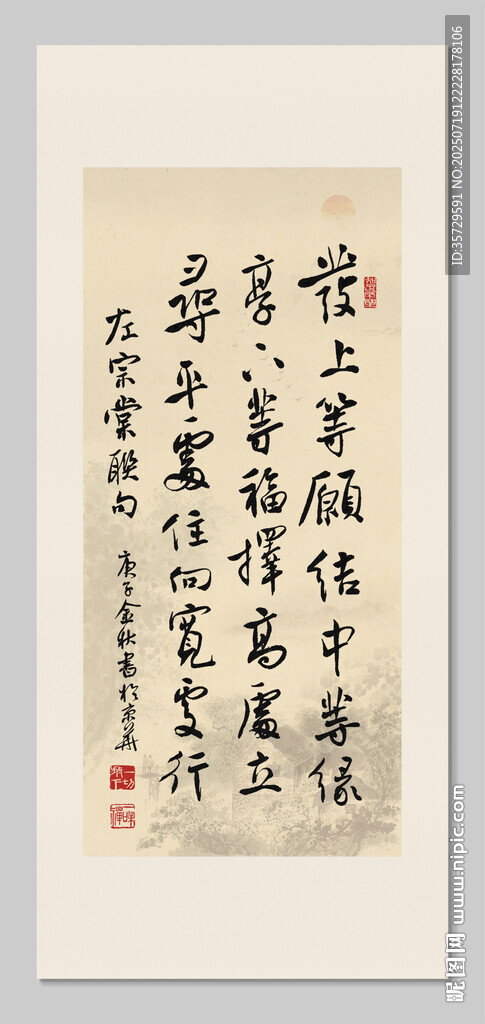 發上等願結中等緣
享下等福擇高處立
尋平處住向寬處行
左宗棠聯句
庚子金秋書於京華
一切放下
ID:35729591 NO:20250719122228178106
昵图网 www.nipic.com